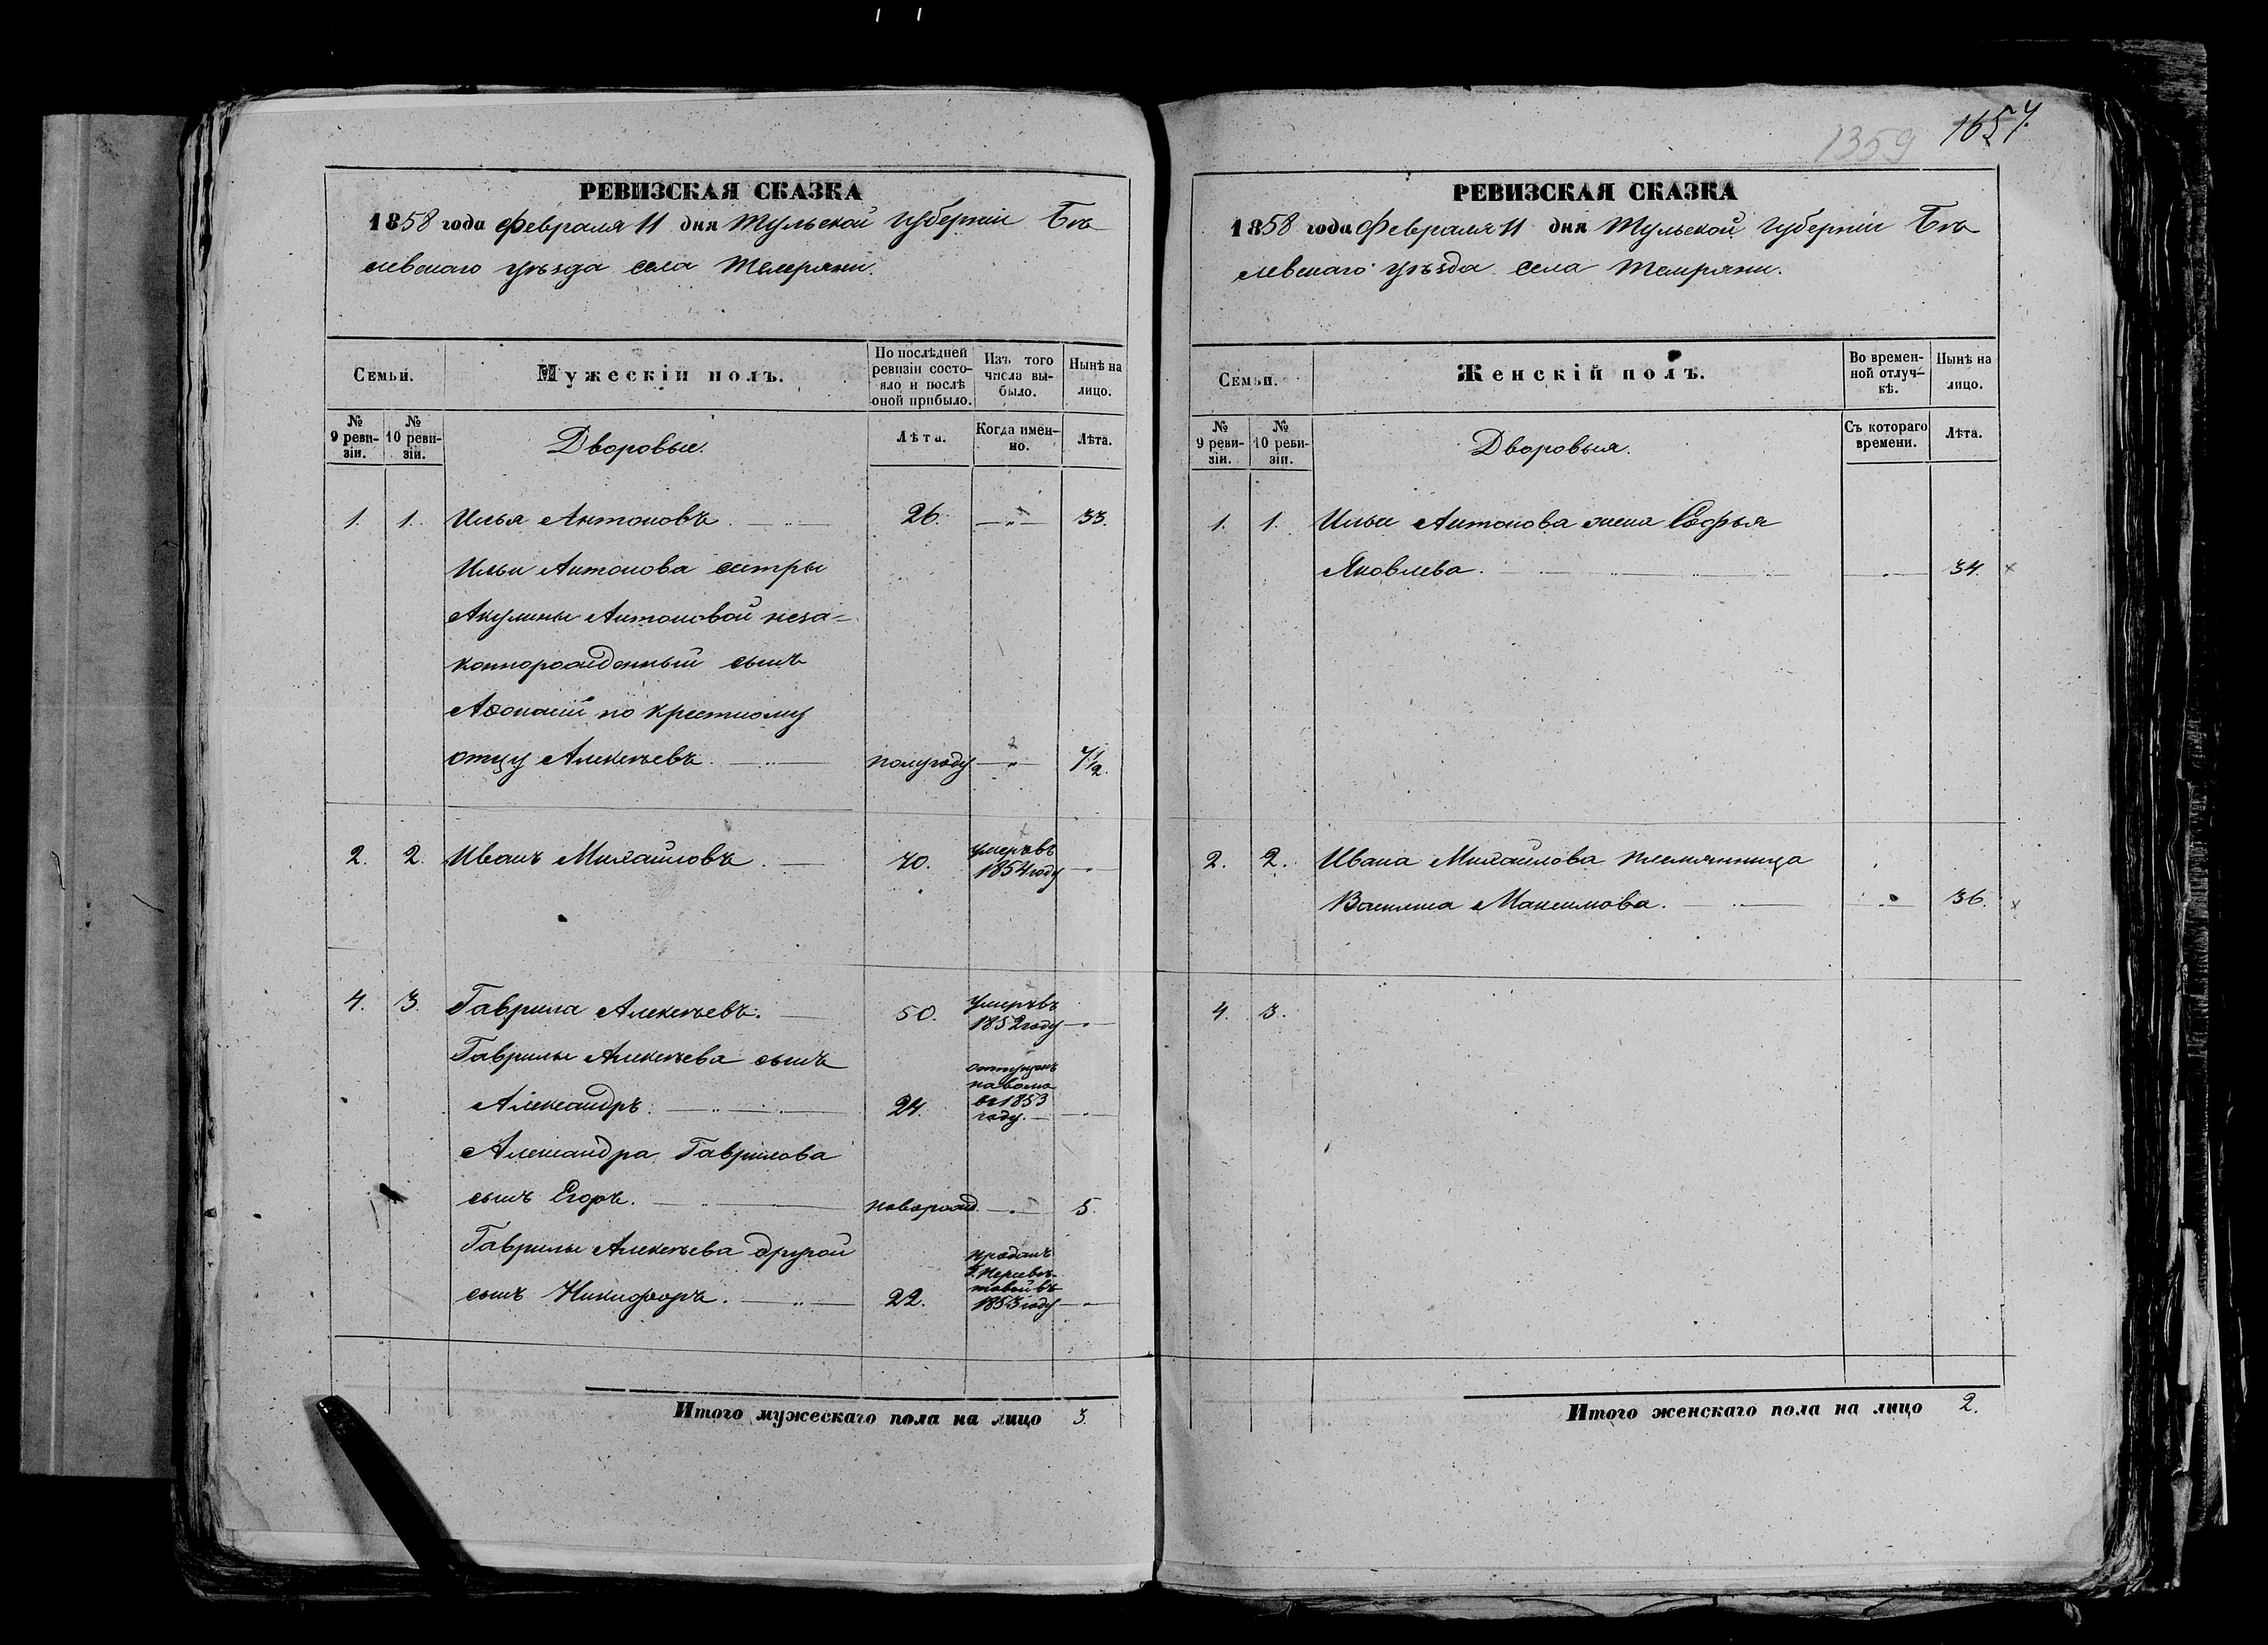 1359 1657.
РЕВИЗСКАЯ СКАЗКА
1858 года Февраля 11 дня Тульской губернiи Бѣ
левскаго уѣзда села Темряни.
Семьи.
Мужескiй полъ.
По послѣдней ревизiи состояло и послѣ оной прибыло.
Изъ того числа выбыло.
Нынѣ на лицо.
№ 9 ревизiи.
№ 10 ревизiи.
Дворовые.
Лѣта.
Когда именно.
Лѣта.
1. 1. Илья Антоновъ. 26. — „ — 33.
Ильи Антонова сестры
Акулины Антоновой неза=
коннорожденный сынъ
Афонасiй по крестному
отцу Алексѣевъ. полугоду — „ — 7 1/2.
2. 2. Иванъ Михайловъ. 70. умеръ въ 1854 году — „ —
4. 3. Гаврила Алексѣевъ. 50. умеръ въ 1852 году — „ —
Гаврилы Алексѣева сынъ
Александръ. 24. отпущенъ на волю въ 1853 году. — „ —
Александра Гаврилова
сынъ Егоръ. новорожд. — „ — 5.
Гаврилы Алексѣева другой
сынъ Никифоръ. 22. проданъ Г. въ 1853 году — „ —
Итого мужескаго пола на лицо 3.
РЕВИЗСКАЯ СКАЗКА
1858 года Февраля 11 дня Тульской губернiи Бѣ
левскаго уѣзда села Темряни.
Семьи.
Женскiй полъ.
Во временной отлучкѣ.
Нынѣ на лицо.
№ 9 ревизiи.
№ 10 ревизiи.
Дворовыя.
Съ котораго времени.
Лѣта.
1. 1. Ильи Антонова жена Софья
Яковлева. — „ — 34. ×
2. 2. Ивана Михайлова племянница
Василиса Максимова. — „ — 36. ×
4. 3.
Итого женскаго пола на лицо 2.